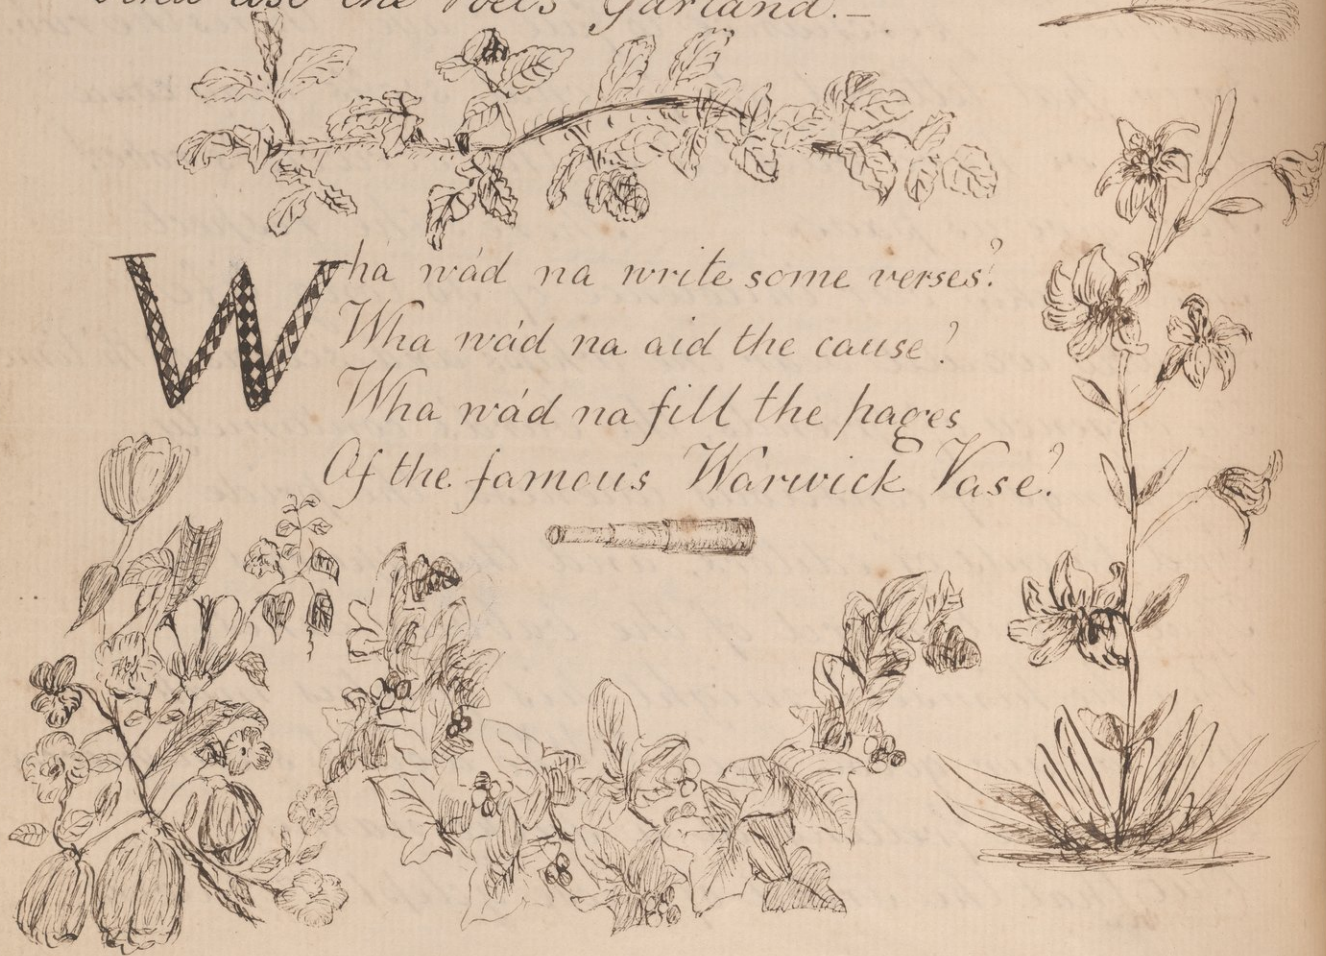 use the Poets Garland.—
Wha wád na write some verses?
Wha wád na aid the cause?
Wha wád na fill the pages
Of the famous Warwick Vase?